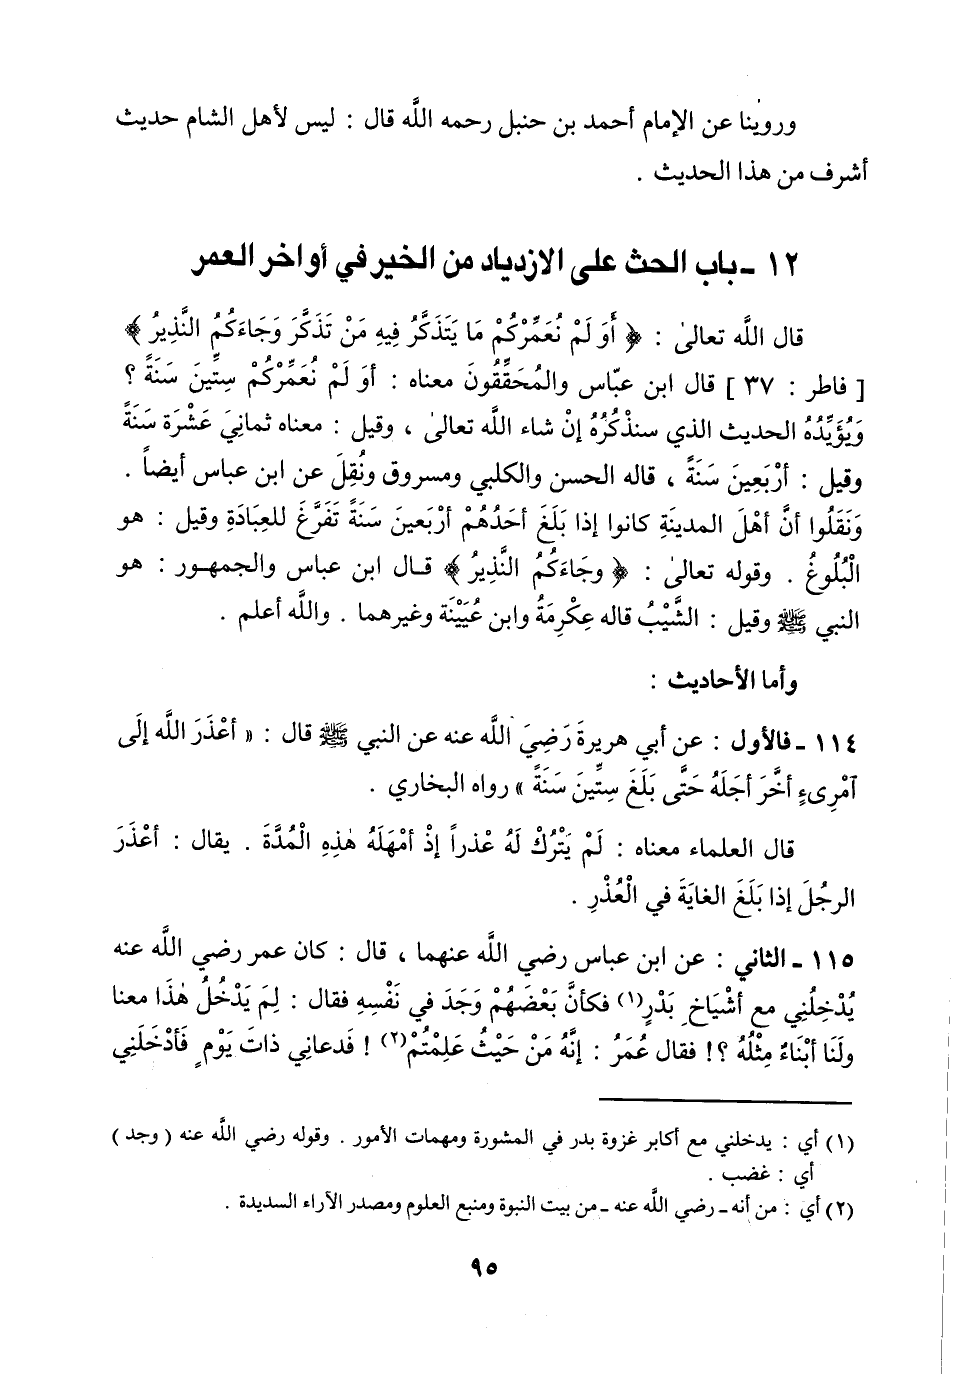 وروينا عن الإمام أحمد بن حنبل رحمه اللّه قال : ليس لأهل الشام حديث
أشرف من هذا الحديث .
١٢ ـ باب الحث على الازدياد من الخير في أواخر العمر
قال اللَّه تعالىٰ : ﴿ أَوَ لَمْ نُعَمِّرْكُمْ مَا يَتَذَكَّرُ فِيهِ مَنْ تَذَكَّرَ وَجَاءَكُمُ النَّذِيرُ ﴾
[ فاطر : ٣٧ ] قال ابن عبّاس والمُحَقِّقُونَ معناه : أوَ لَمْ نُعَمِّرْكُمْ سِتِّينَ سَنَةً ؟
وَيُؤَيِّدُهُ الحديث الذي سنذْكُرُهُ إنْ شاء اللَّه تعالىٰ ، وقيل : معناه ثمانيَ عَشْرَة سَنَةً
وقيل : أرْبَعِينَ سَنَةً ، قاله الحسن والكلبي ومسروق ونُقِلَ عن ابن عباس أيضاً .
وَنَقَلُوا أنَّ أهْلَ المدينَةِ كانوا إذا بَلَغَ أحَدُهُمْ أرْبَعينَ سَنَةً تَفَرَّغَ للعِبَادَةِ وقيل : هو
الْبُلُوغُ . وقوله تعالىٰ : ﴿ وجَاءَكُمُ النَّذِيرُ ﴾ قـال ابن عباس والجمهـور : هو
النبي ﷺ وقيل : الشَّيْبُ قاله عِكْرِمَةُ وابن عُيَيْنَة وغيرهما . واللَّه أعلم .
وأما الأحاديث :
١١٤ ـ فالأول : عن أبي هريرة رَضِيَ اللَّه عنه عن النبي ﷺ قال : « أعْذَرَ اللَّه إلَى
آمْرِىءٍ أخَّرَ أجَلَهُ حَتَّى بَلَغَ سِتِّينَ سَنَةً » رواه البخاري .
قال العلماء معناه : لَمْ يَتْرُكْ لَهُ عْذراً إذْ أمْهَلَهُ هٰذِهِ الْمُدَّةَ . يقال : أعْذَرَ
الرجُلَ إذا بَلَغَ الغايَةَ في الْعُذْرِ .
١١٥ ـ الثاني : عن ابن عباس رضي اللَّه عنهما ، قال : كان عمر رضي اللَّه عنه
يُدْخِلُنِي مع أشْيَاخِ بَدْرٍ(١) فكأنَّ بَعْضَهُمْ وَجَدَ في نَفْسِهِ فقال : لِمَ يَدْخُلُ هٰذَا معنا
ولَنَا أبْنَاءٌ مِثْلُهُ ؟! فقال عُمَرُ : إنَّهُ مَنْ حَيْثُ عَلِمْتُمْ(٢) ! فَدعاني ذاتَ يَوْمٍ فَأدْخَلَنِي
(١) أي : يدخلني مع أكابر غزوة بدر في المشورة ومهمات الأمور . وقوله رضي اللَّه عنه ( وجد )
أي : غضب .
(٢) أي : من أنه ـ رضي اللَّه عنه ـ من بيت النبوة ومنبع العلوم ومصدر الآراء السديدة .
٩٥